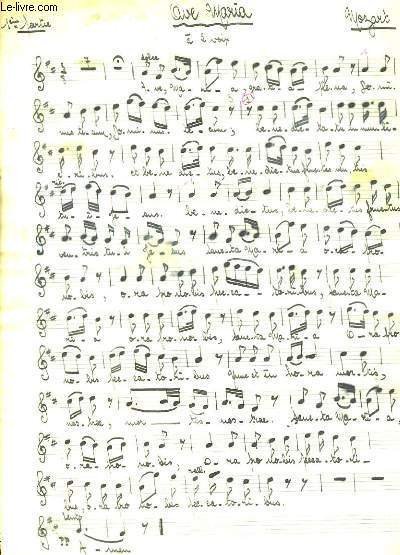 Le-livre.com
1ère Partie Ave Maria Mozart
à 2 voix
7 dolce
A-ve, Ma-ri-a gra-ti-a ple-na, Do-mi-
nus te-cum, Do-mi-nus te-cum, be-ne-dic-ta tu in mu-li-e-
ri-bus et be-ne-dic-tus, be-ne-dic-tus fructus ven-tris
tu-i Je-sus. be-ne-dic-tus, be-ne-dic-tus fructus
ven-tris tu-i Je-sus Sancta Ma-ri-a o-ra pro
no-bis, o-ra pro nobis pec-ca-to-ribus, Sancta Ma-
ri-a o-ra pro no-bis, Sanc-ta Ma-ri-a O-ra pro
no-bis pec-ca-to-ri-bus nunc et in ho-ra mor-tis,
nos-trae, mor-tis nos-trae. Sanc-ta Ma-ri-a,
o-ra pro no-bis, O-ra pro nobis pecca-to-ri-
bus, o-ra pro no-bis pec-ca-to-ri-bus.
rall.
pp
A-men